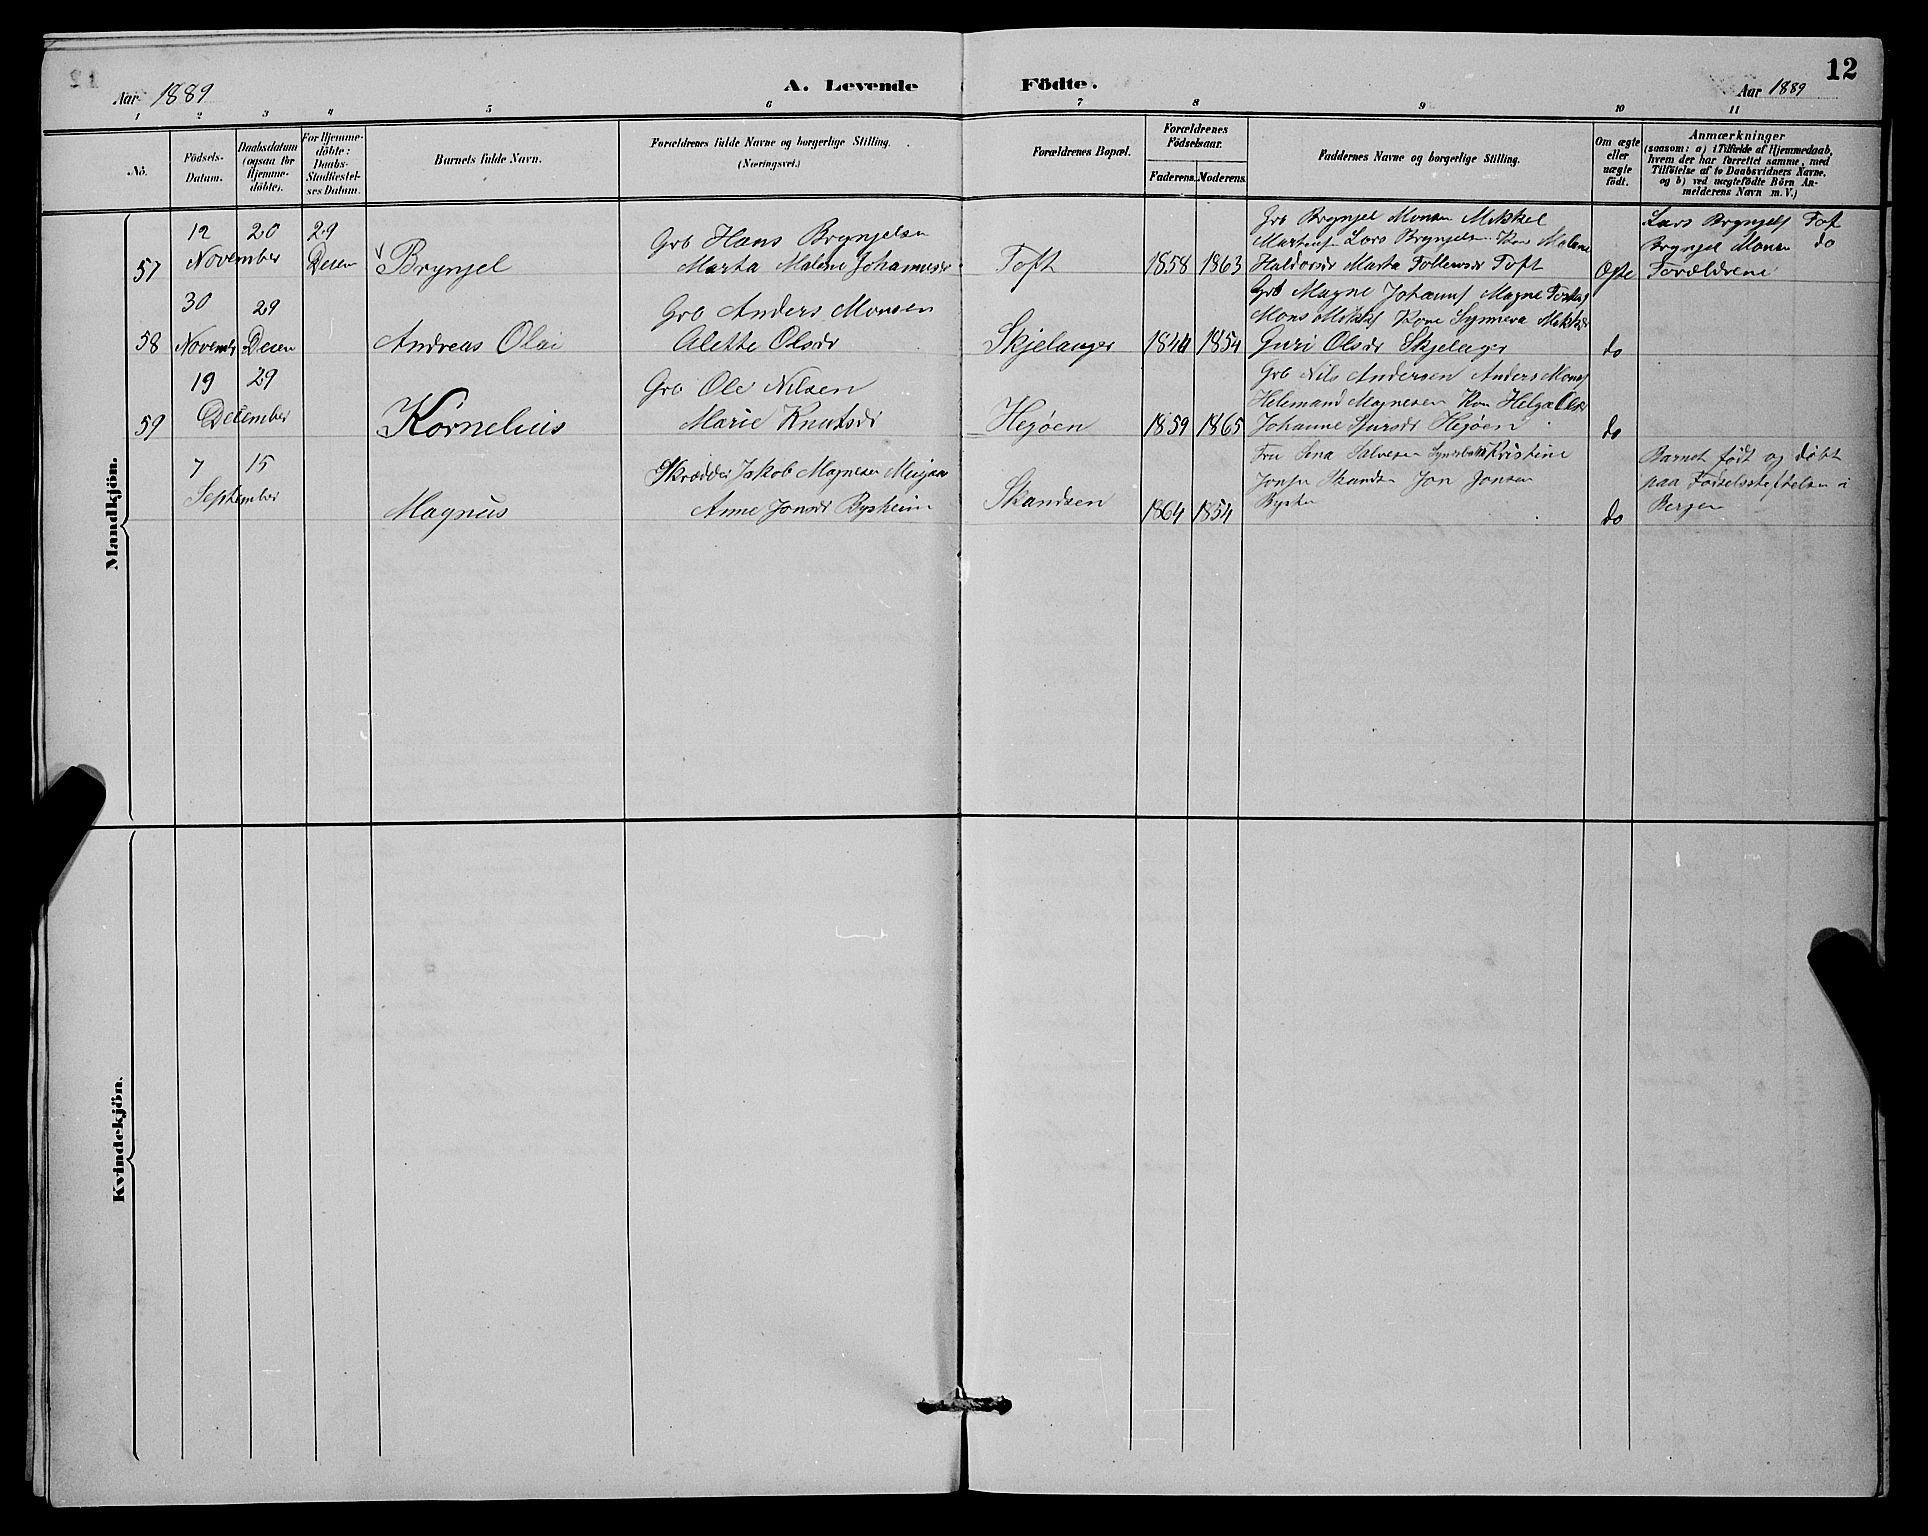 12
Aar 1889
A. Levende Födte.
Aar 1889
1 2 3 4 5 6 7 8 9 10 11
No.
Födsels-
Datum.
Daabsdatum
(ogsaa for
Hjemme-
döbte).
For Hjemme-
döbte:
Daabs-
Stadfæstel-
ses Datum.
Barnets fulde Navn.
Forældrenes fulde Navne og borgerlige Stilling.
(Næringsvei.)
Forældrenes Bopæl.
Forældrenes
Födselsaar.
Faderens.
Moderens.
Faddernes Navne og borgerlige Stilling.
Om ægte
eller
uægte
født.
Anmærkninger
(saasom: a) i Tilfælde af Hjemmedaab,
hvem der har forrettet samme, med
Tilföielse af to Daabsvidners Navne,
og b) ved uægtefödte Börn An-
melderens Navn m. V.)
Mandkjön.
57
12
November
20
29
Desem
Brynjel
Grb Hans Brynjelsen
Marta Malene Johannesdr
Toft
1858
1863
Grb Brynjel Monsen Mikkel
Martinsen Lars Brynjelsen Kone Malene
Haldorsdr Marta Tollevsdr Toft
Ægte
Lars Brynjels Toft
Brynjel Monsen do
Forældrene
58
30
November
29
Desem
Andreas Olai
Grb Anders Monsen
Alette Olsdr
Skjelanger
1854
Grb Magne Johanns Magne
Mons Mikkels Kone Synneva Mikkelsdr
Guri Olsdr Skjelanger
do
59
19
December
29
Kornelius
Grb Ole Nilsen
Marie Knutsdr
Hejøen
1859
1865
Grb Nils Andersen Anders Mons
Helemand Magnesen Kone Helga
Johanne Sjursdr Hejøen
do
7
September
15
Magnus
Skrædder Jakob Magnesen
Anne Jonsdr Bysheim
Skandsen
1864
1854
Fru Lina Salvesen Kristine
Jon Jonsen
do
Barnet født og døbt
paa Fødselsstiftelsen i
Bergen
Kvindekjön.